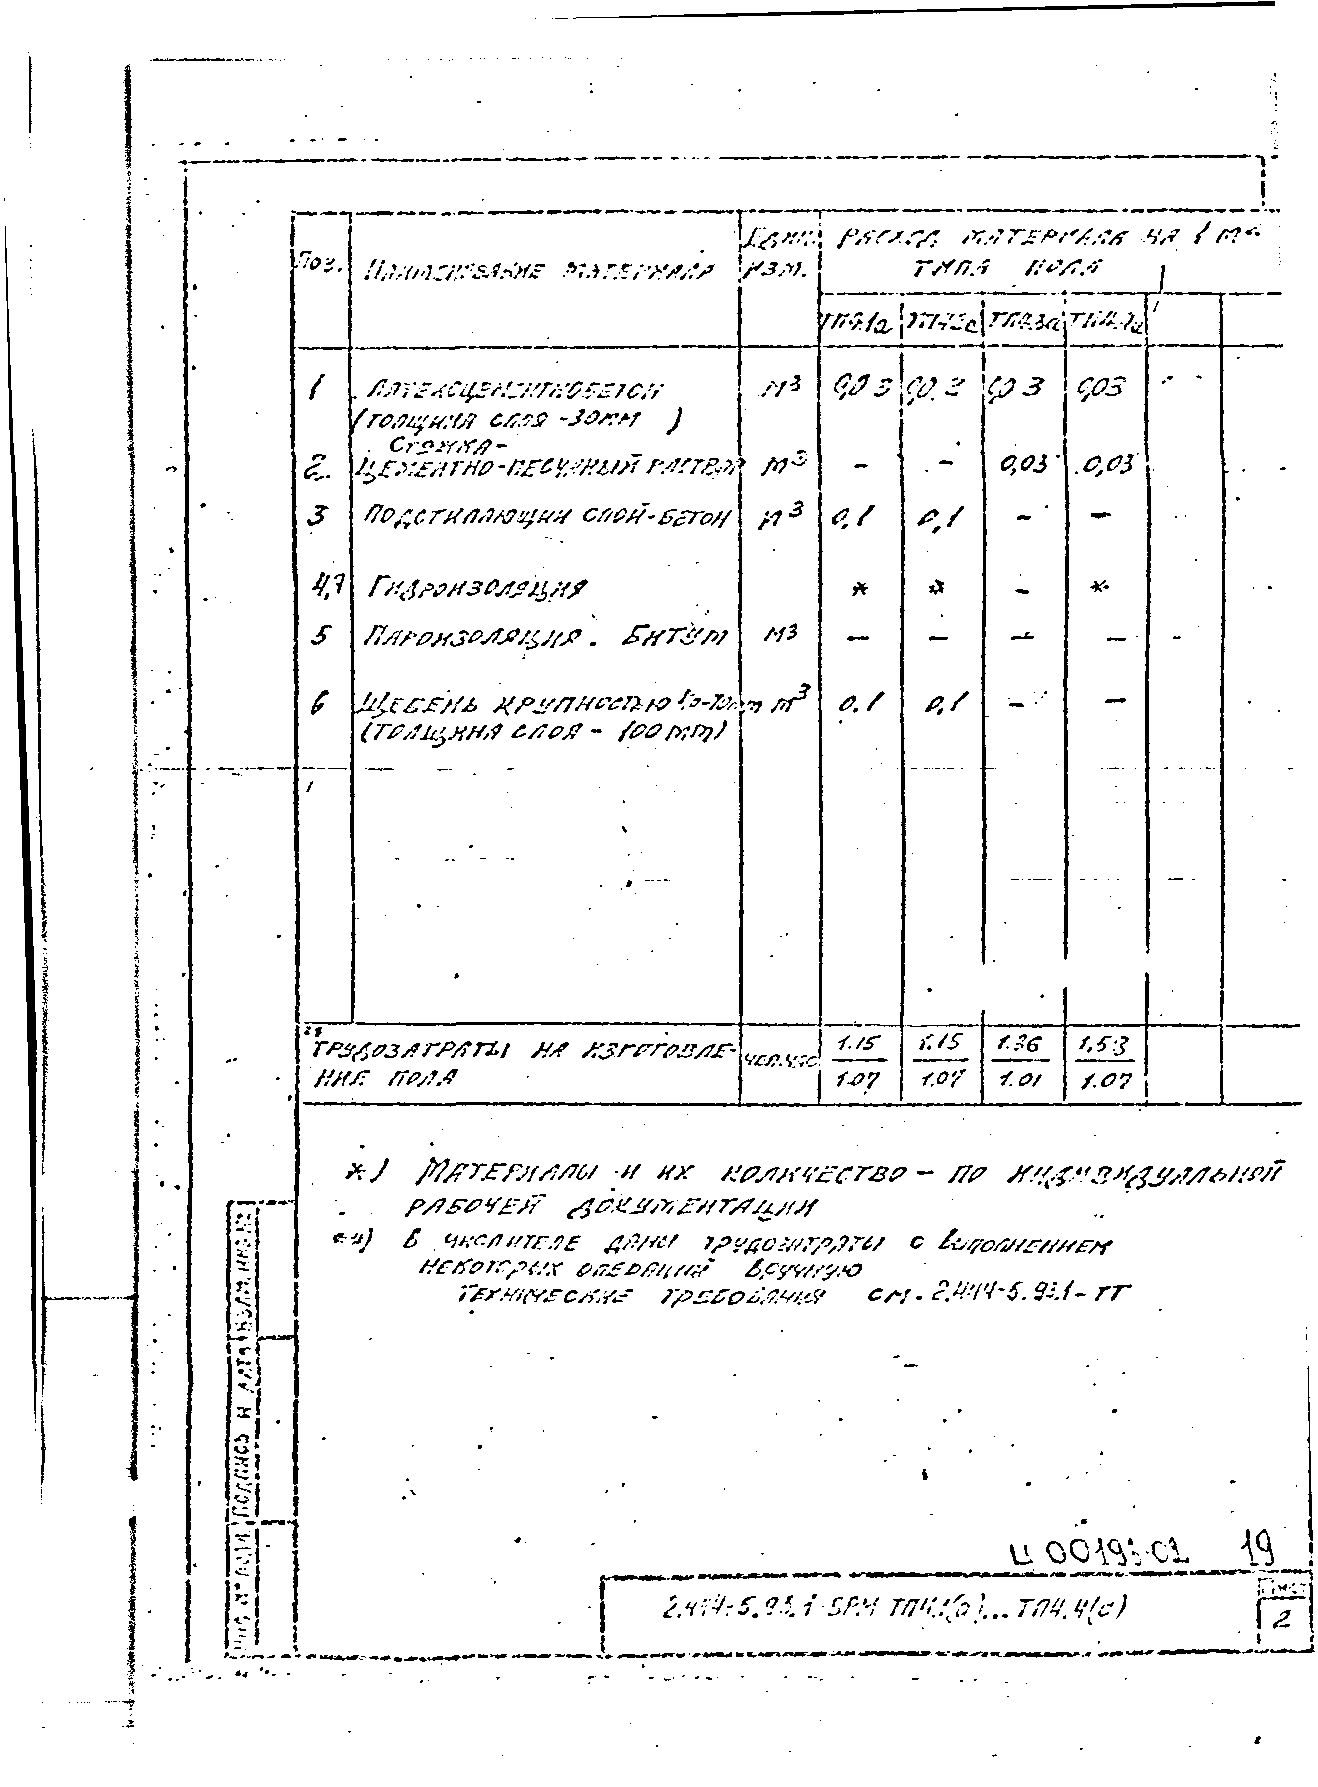 Поз.
Наименование материала
Един. изм.
Расход материала на 1 м²
типа пола
ТП4.1а ТП4.2а ТП4.3а ТП4.4а
1 Латексцементнобетон м3 0,03 0,03 0,03 0,03
(толщина слоя -30мм )
Стяжка-
2. Цементно-песчаный раствор м3 – – 0,03 0,03
3 Подстилающий слой-бетон м3 0,1 0,1 – –
4,7 Гидроизоляция * * – *
5 Пароизоляция. Битум м3 – – – –
6 Щебень крупностью м3 0.1 0,1 – –
(толщина слоя - 100 мм)
Трудозатраты на изготовле- чел.час 1.15 1.15 1.36 1.53
ние пола 1.07 1.07 1.01 1.07
*) Материалы и их количество – по индивидуальной
рабочей документации
**) В числителе даны трудозатраты с выполнением
некоторых операций вручную
Технические требования см. 2.444-5.93.1-ТТ
Инв. № подл. Подпись и дата Взам. инв. №
Ц 00193-01 19
2.444-5.93.1-5РМ ТП4.1(а)...ТП4.4(а)
Лист
2